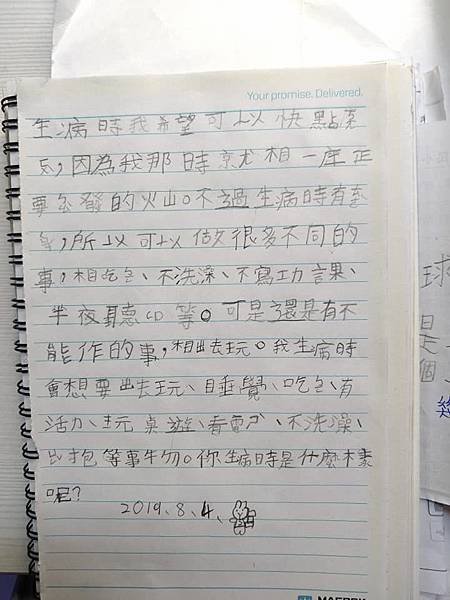 Your promise. Delivered.
生病時我希望可以快點
,因為我那時京尤相一座正
要發的火山。不過生病時有
,所以可以做很多不同的
事,相吃包、不洗澡、不寫功課、
半夜聽CD等。可是還是有不
能作的事,相出去玩。我生病時
會想要出去玩、睡覺、吃包、有
活力、玩桌遊、看電、不洗澡、
打包等事物。你生病時是什麼樣
呢?
2019、8、4、
球
是
個
MAERSK